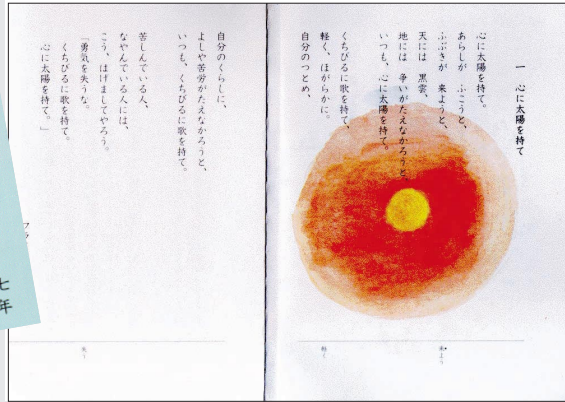 一　心に太陽を持て
心に太陽を持て。
あらしが　ふこうと、
ふぶきが　来ようと、
天には　黒雲、
地には　争いがたえなかろうと、
いつも、心に太陽を持て。
くちびるに歌を持て、
軽く、ほがらかに。
自分のつとめ、
来よう
軽く
自分のくらしに、
よしや苦労がたえなかろうと、
いつも、くちびるに歌を持て。
苦しんでいる人、
なやんでいる人には、
こう、はげましてやろう。
「勇気を失うな。
くちびるに歌を持て。
心に太陽を持て。」
失う
七
年